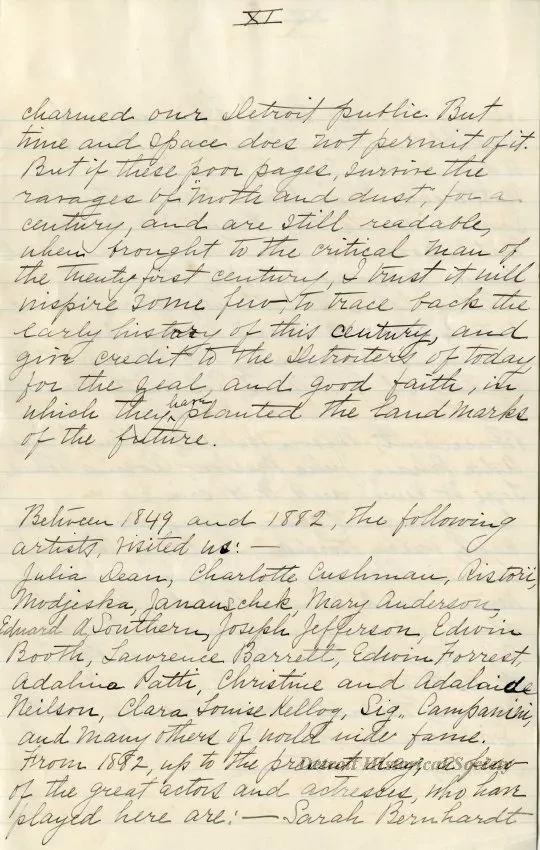 XI
charmed our Detroit public. But
time and space does not permit of it.
But if these poor pages, survive the
ravages of "moth and dust", for a
century, and are still readable,
when brought to the critical man of
the twenty first century, I trust it will
inspire some few, to trace back the
early history of this century, and
give credit to the Detroiters of today
for the zeal, and good faith, in
which they have planted the land marks
of the future.
Between 1849 and 1882, the following
artists, visited us: —
Julia Dean, Charlotte Cushman, Ristori,
Modjeska, Janauschek, Mary Anderson,
Edward A. Southern, Joseph Jefferson, Edwin
Booth, Lawrence Barrett, Edwin Forrest,
Adalina Patti, Christine and Adalaide
Neilson, Clara Louise Kellog, Sig. Campanini,
and many others of world wide fame.
From 1882, up to the present day, a few
of the great actors and actresses, who have
played here are: — Sarah Bernhardt
Detroit Historical Society